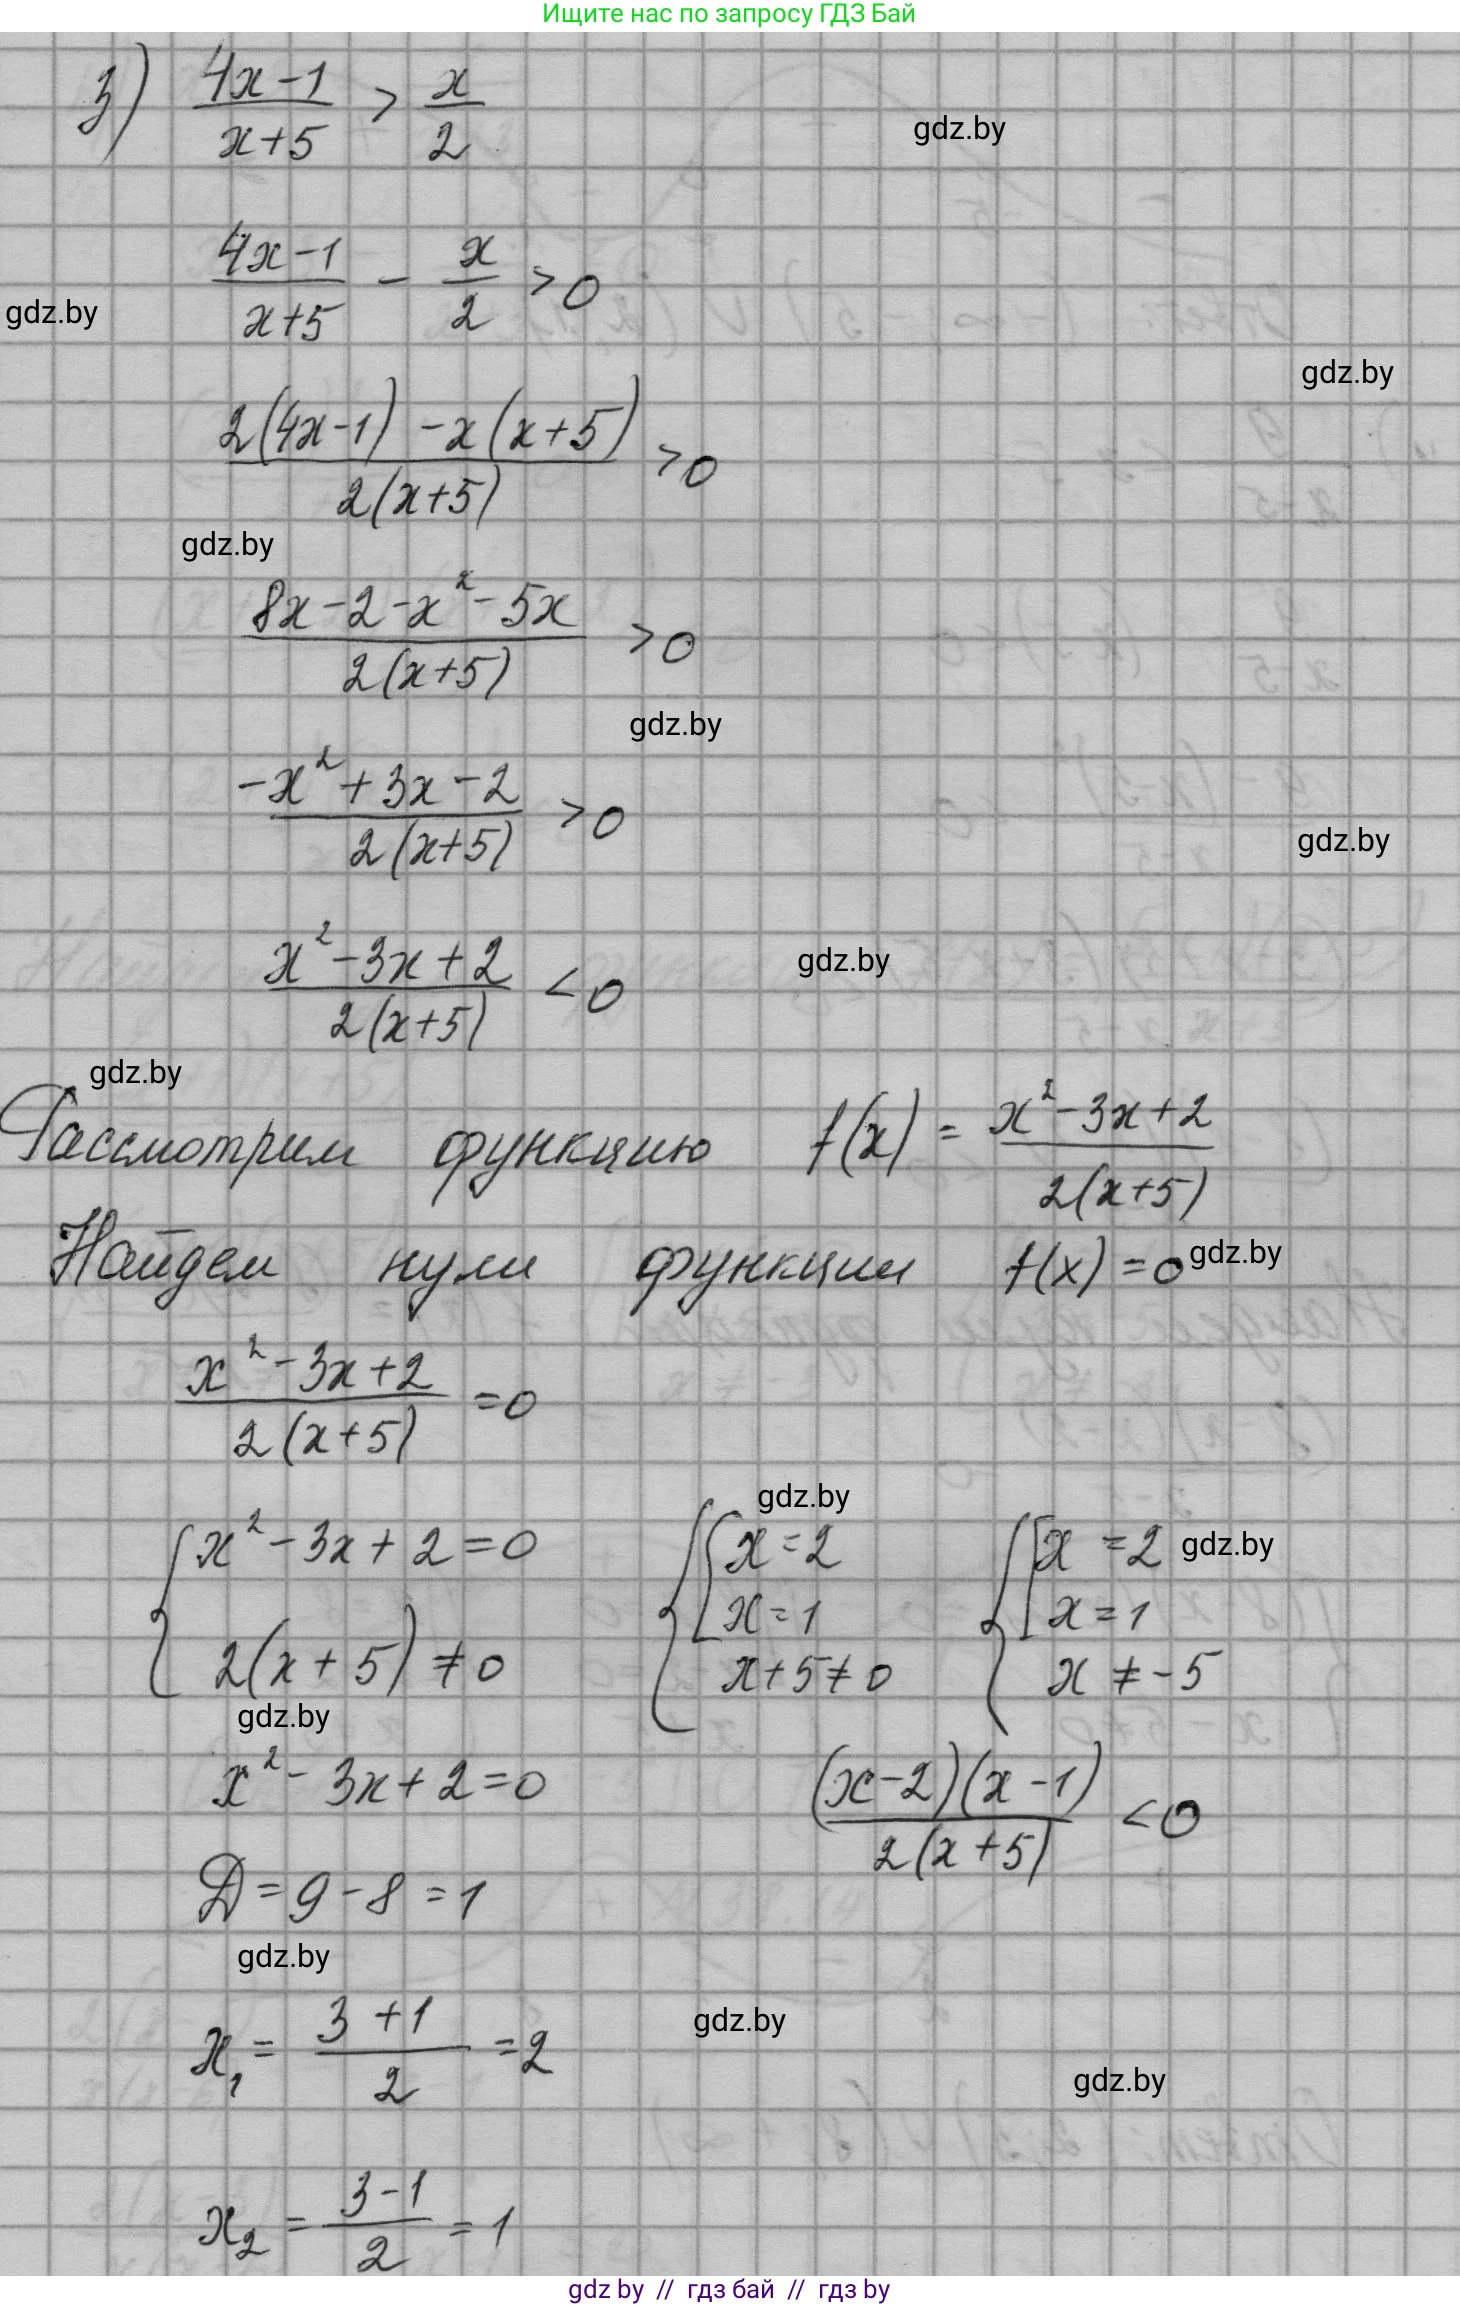 Ищите нас по запросу ГДЗ Бай
з) (4x-1)/(x+5) > x/2
gdz.by
(4x-1)/(x+5) - x/2 > 0
gdz.by
gdz.by
(2(4x-1) - x(x+5))/(2(x+5)) > 0
gdz.by
(8x-2-x²-5x)/(2(x+5)) > 0
gdz.by
(-x²+3x-2)/(2(x+5)) > 0
gdz.by
(x²-3x+2)/(2(x+5)) < 0
gdz.by
gdz.by
Рассмотрим функцию f(x) = (x²-3x+2)/(2(x+5))
Найдем нули функции f(x)=0
gdz.by
(x²-3x+2)/(2(x+5)) = 0
gdz.by
{ x²-3x+2=0 { [ x=2 { [ x=2
gdz.by
x=1 x=1
2(x+5)≠0 x+5≠0 x≠-5
gdz.by
x²-3x+2=0 ((x-2)(x-1))/(2(x+5)) < 0
D=9-8=1
gdz.by
x₁ = (3+1)/2 = 2
gdz.by
gdz.by
x₂ = (3-1)/2 = 1
gdz by // гдз бай // гдз by